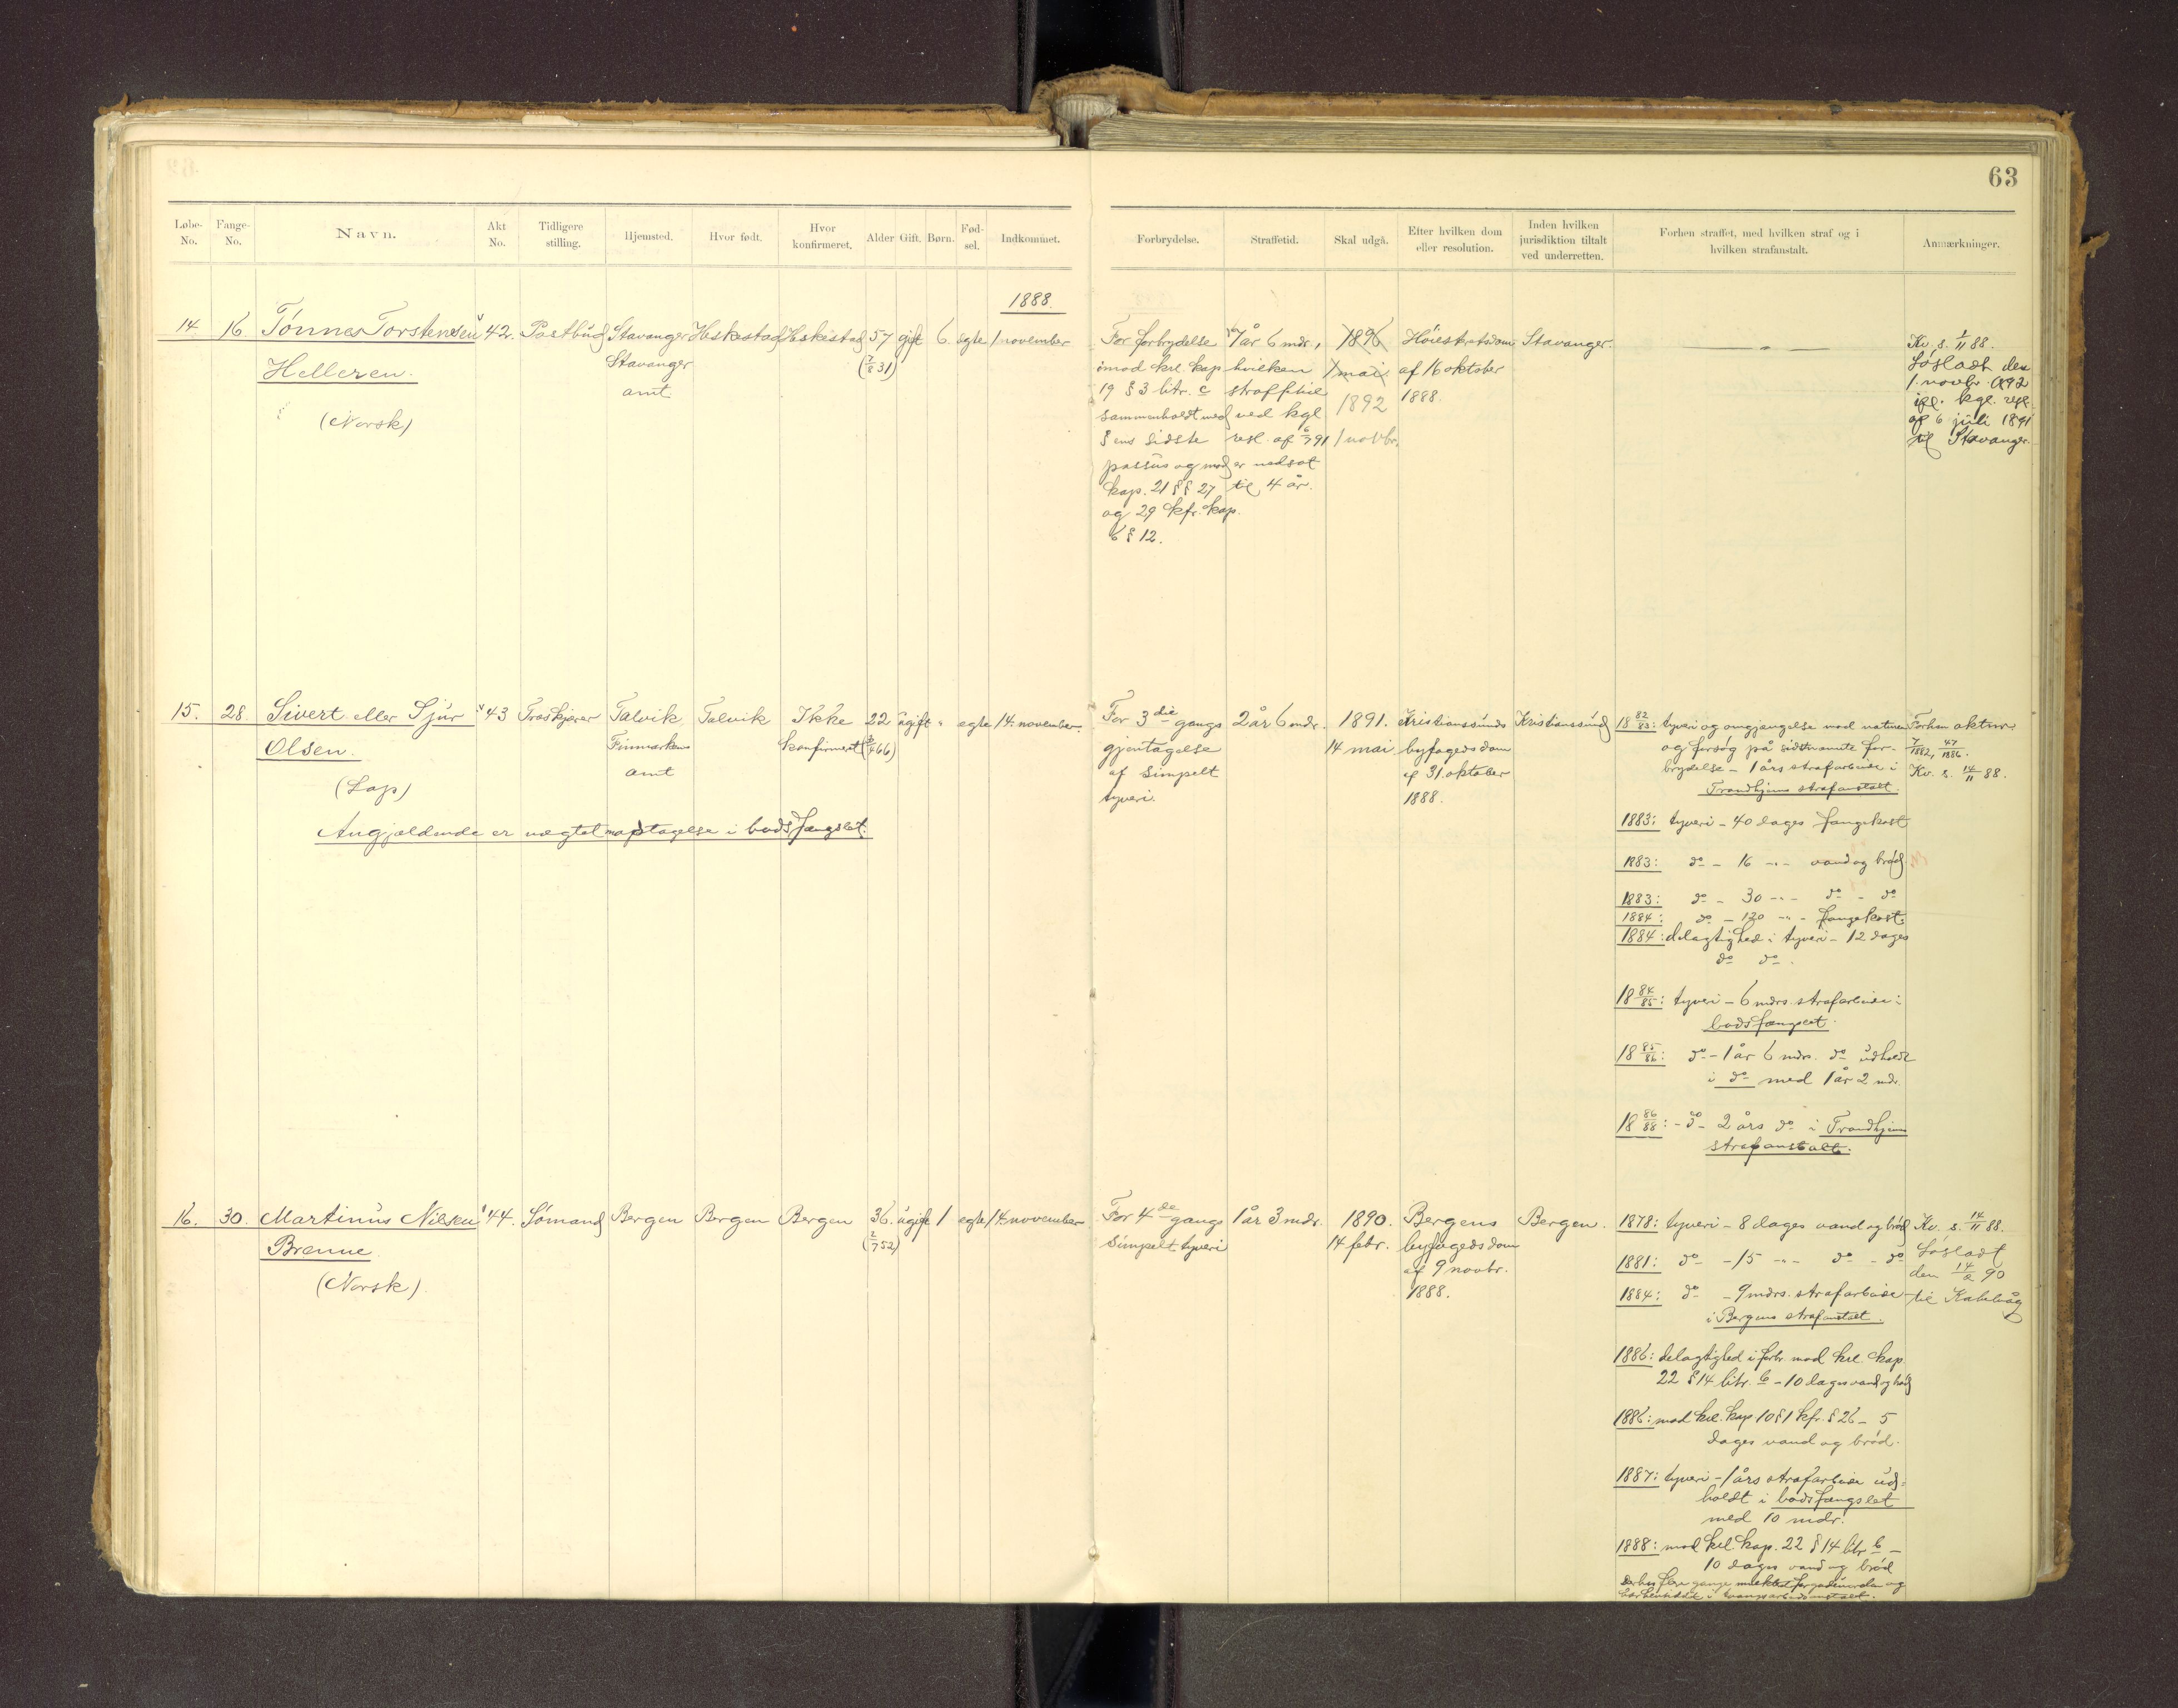 63
Løbe-No.
Fange-No.
Navn.
Akt No.
Tidligere stilling.
Hjemsted.
Hvor født.
Hvor konfirmeret.
Alder
Gift.
Børn.
Fød-sel.
Indkommet.
Forbrydelse.
Straffetid.
Skal udgå.
Efter hvilken dom eller resolution.
Inden hvilken jurisdiktion tiltalt ved underretten.
Forhen straffet, med hvilken straf og i hvilken strafanstalt.
Anmærkninger.
1888.
14. 16 Tönnes Torstensen 42. Postbud Stavanger Heskestad Heskestad 57 gift 6. egte 1 november
Helleren.
(Norsk)
Stavanger
amt
(7/8 31)
For forbrydelse
imod krl. kap
19 § 3 litr. c
sammenholdt med
§ens sidste
passus og mod
kap. 21 §§ 27
og 29 kfr. kap.
6 § 12.
7 år 6 mdr.,
hvilken
straffetid
ved kgl.
resl. af 6/7 91
er nedsat
til 4 år.
1896
1 mai
1892
1 novbr.
Höiestretsdom
af 16 oktober
1888.
Stavanger.
Kv. s. 1/11 88.
Lösladt den
1. novbr. 1892
ifl. kgl. resl.
af 6 juli 1891
til Stavanger.
15. 28. Sivert eller Sjur 43 Talvik Talvik Ikke 22 ugift " egte 14. november.
Olsen.
(Lap)
Finmarkens
amt
konfirmeret
Angjældende er nægtet modtagelse i bodsfængslet.
For 3die gangs
gjentagelse
af simpelt
tyveri.
2 år 6 mdr.
1891.
14 mai
Kristianssunds
byfogeds dom
af 31. oktober
1888.
Kristianssund
18 82/83: tyveri og omgjængelse mod naturen
og forsøg på sidstnævnte for-
brydelse - 1 års strafarbeide i
Trondhjems strafanstalt.
1883: tyveri - 40 dages fangekost
1883: do - 16 -"- vand og bröd
1883: do - 30 -"- do - do
1884: do - 120 -"- fangekost.
1884: delagtighed i tyveri - 12 dages
do do.
18 84/85: tyveri - 6 mdrs. strafarbeide i
bodsfængslet.
18 85/86: do - 1 år 6 mdrs. do udholdt
i do med 1 år 2 mdr.
18 86/88: - do - 2 års do i Trondhjems
strafanstalt.
Forhen aktnr.
7/1882, 47/1886.
Kv. s. 14/11 88.
16. 30. Martinus Nilsen 44. Sömand Bergen Bergen Bergen 36. ugift 1 egte 14. november
Brenne
(Norsk)
(2/7 52)
For 4de gangs
simpelt tyveri
1 år 3 mdr.
1890.
14 febr.
Bergens
byfogeds dom
af 9 novbr.
1888.
Bergen.
1878: tyveri - 8 dages vand og bröd
1881: do - 15 -"- do - do
1884: do - 9 mdrs. strafarbeide
i Bergens strafanstalt.
1886: delagtighed i forbr. mod krl. kap.
22 § 14 litr. b - 10 dages vand og bröd
1886: mod krl. kap 10 § 1 kfr. § 26 - 5
dages vand og bröd.
1887: tyveri - 1 års strafarbeide ud-
holdt i bodsfængslet
med 10 mdr.
1888: mod krl. kap. 22 § 14 litr b -
10 dages vand og bröd
Derhos flere gange mulkteret for gadeuorden og
Kv. s. 14/11 88.
Lösladt
den 14/2 90
til